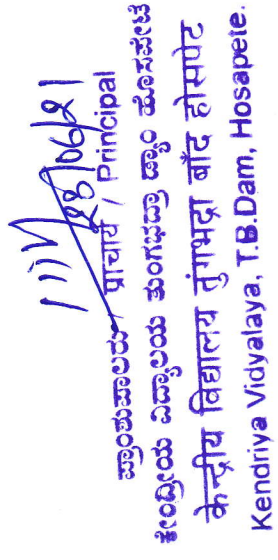 28/06/21
ಪ್ರಾಂಶುಪಾಲರು प्राचार्य / Principal
ಕೇಂದ್ರೀಯ ವಿದ್ಯಾಲಯ ತುಂಗಭದ್ರಾ ಡ್ಯಾಂ ಹೊಸಪೇಟೆ
केन्द्रीय विद्यालय तुंगभद्रा बाँद होसपेट
Kendriya Vidyalaya, T.B.Dam, Hosapete.